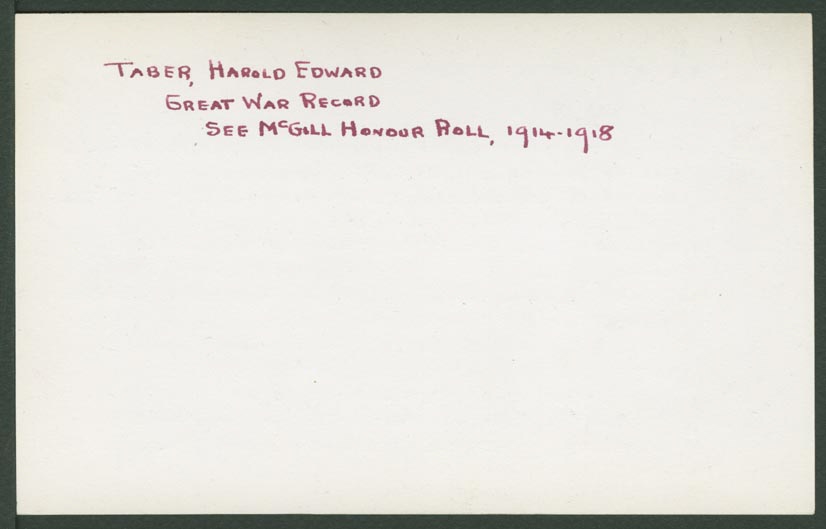 TABER, HAROLD EDWARD
GREAT WAR RECORD
SEE McGILL HONOUR ROLL, 1914-1918